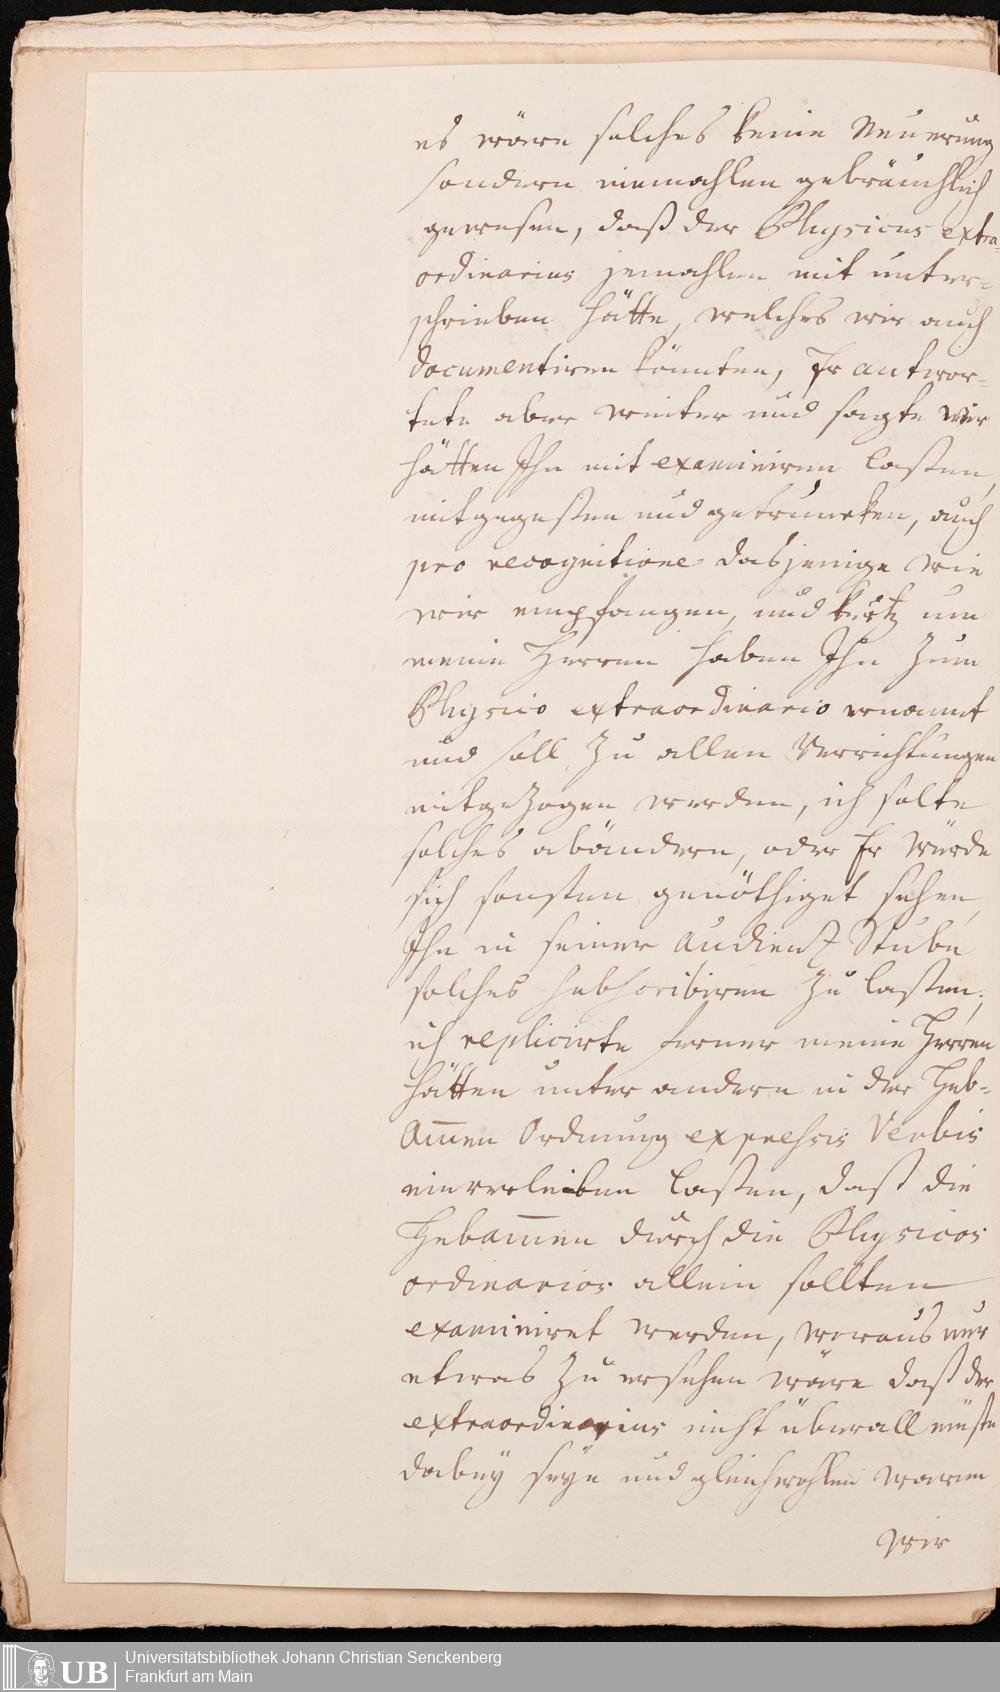 es wäre solches keine Neuerung
sondern niemahlen gebräuchlich
gewesen, daß der Physicus extra-
ordinarius jemahlen mit unter-
schrieben hätte, welches wir auch
documentiren könnten, Er antwor-
tete aber weiter und sagte wir
hätten Ihn mit examiniren laßen,
mitgegeßen und getruncken, auch
pro recognitione dasjenige wie
wir empfangen, und kurtz um
meine Herren haben Ihn zum
Physico extraordinario ernannt
und soll zu allen Verrichtungen
mitgezogen werden, ich solte
solches abändern, oder Er würde
sich sonsten genöthiget sehen,
Ihn in seiner Audientz Stube
solches subscribiren zu laßen,
ich replicirte ferner meine Herren
hätten unter andern in der Heb-
Am̅en Ordnung expressis Verbis
einverleiben laßen, daß die
Hebam̅en durch die Physicos
ordinarios allein sollten
examiniret werden, woraus nur
etwas zu ersehen wäre daß der
extraordinarius nicht überall müste
dabey seye und gleichwohlen waren
wir
UB Universitätsbibliothek Johann Christian Senckenberg
Frankfurt am Main